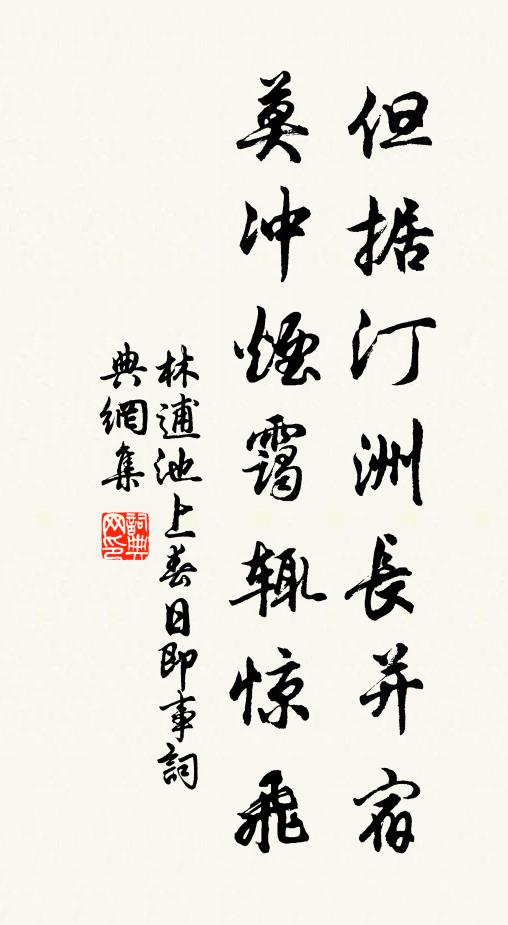 但据汀洲長并宿
莫冲煙靄辄惊飛
林逋池上春日即事詞
典網集
詞典
网印